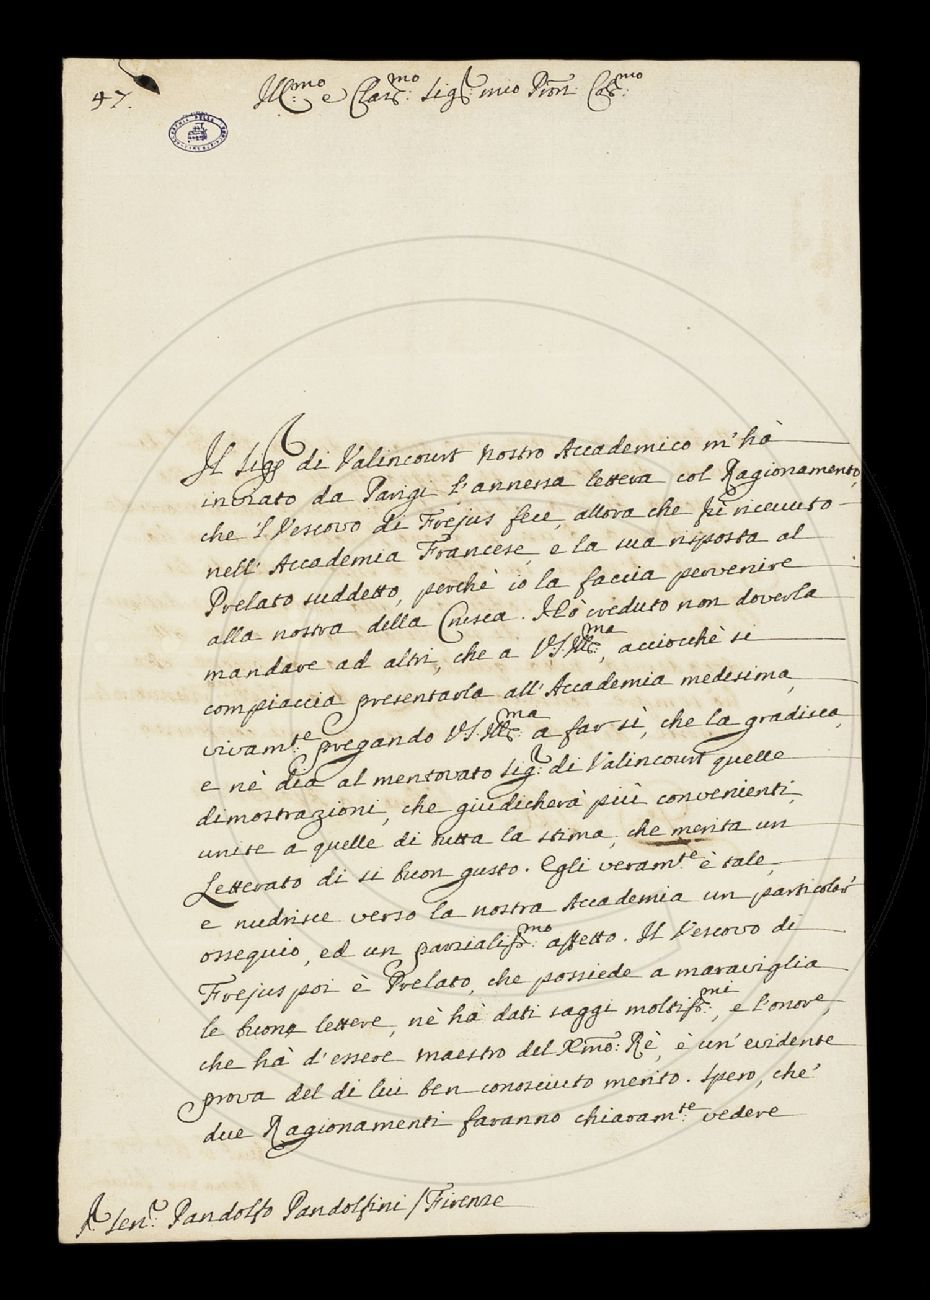 47.
Ill:mo e Clar:mo Sig:r mio Pron Col:mo
Il Sig:r di Valincourt nostro Accademico m'hà
inviato da Parigi l'annessa lettera col Ragionamento,
che 'l Vescovo di Frejus fece, allora che fù ricevuto
nell' Accademia Francese, e la sua risposta al
Prelato suddetto, perchè io la faccia pervenire
alla nostra della Crusca. Hò creduto non doverla
mandare ad altri, che a V.S. Ill:ma, acciocchè si
compiaccia presentarla all' Accademia medesima,
vivam:te pregando V.S. Ill:ma a far sì, che la gradisca,
e nè dia al mentovato Sig:r di Valincourt quelle
dimostrazioni, che giudicherà più convenienti,
unite a quelle di tutta la stima, che merita un
Letterato di si buon gusto. Egli veram:te è tale,
e nudrisce verso la nostra Accademia un particolar'
ossequio, ed un parzialiss:mo affetto. Il Vescovo di
Frejus poi è Prelato, che possiede a maraviglia
le buone lettere, nè hà dati saggi moltiss:mi, e l'onore,
che hà d'essere maestro del Xmo: Rè, è un' evidente
prova del di lui ben conosciuto merito. Spero, che'
due Ragionamenti faranno chiaram:te vedere
Sen:r Pandolfo Pandolfini / Firenze